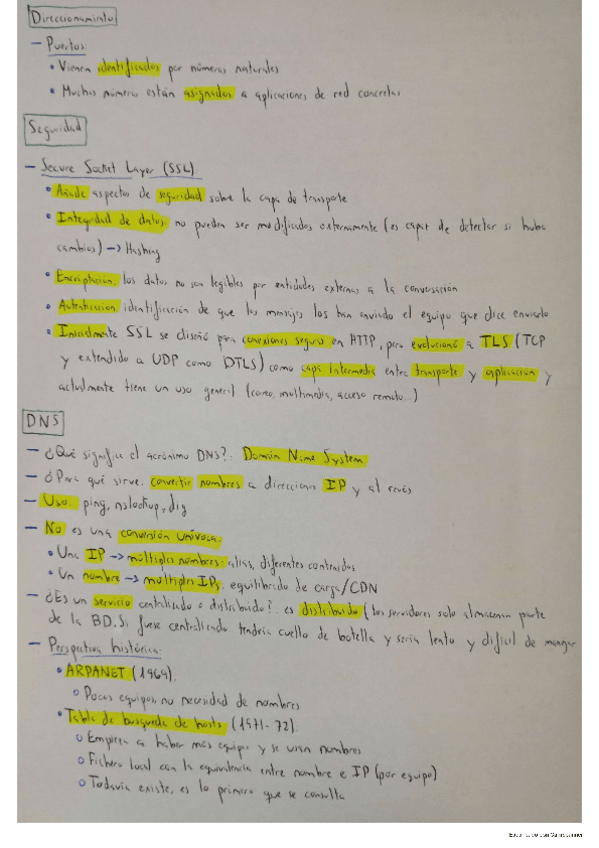 Direccionamiento
- Puertos:
• Vienen identificados por números naturales
• Muchos números están asignados a aplicaciones de red concretas
Seguridad
- Secure Socket Layer (SSL):
• Añade aspectos de seguridad sobre la capa de transporte
• Integridad de datos: no pueden ser modificados externamente (es capaz de detectar si hubo
cambios) → Hashing
• Encriptación: los datos no son legibles por entidades externas a la conversación
• Autenticación: identificación de que los mensajes los han enviado el equipo que dice enviarlo
• Inicialmente SSL se diseñó para conexiones seguras en HTTP, pero evolucionó a TLS (TCP
y extendido a UDP como DTLS) como capa intermedia entre transporte y aplicación y
actualmente tiene un uso general (correo, multimedia, acceso remoto...)
DNS
- ¿Qué significa el acrónimo DNS?: Domain Name System
- ¿Para qué sirve: convertir nombres a direcciones IP y al revés
- Uso: ping, nslookup, dig
- No es una conversión unívoca:
• Una IP → múltiples nombres: alias, diferentes contenidos
• Un nombre → múltiples IPs: equilibrido de carga/CDN
- ¿Es un servicio centralizado o distribuido?: es distribuido (los servidores solo almacenan parte
de la BD. Si fuese centralizado tendría cuello de botella y sería lento y difícil de manejar
- Perspectiva histórica:
• ARPANET (1969):
o Pocos equipos, no necesidad de nombres
• Tabla de búsqueda de hosts (1971-72):
o Empieza a haber más equipos y se usan nombres
o Fichero local con la equivalencia entre nombre e IP (por equipo)
o Todavía existe, es lo primero que se consulta